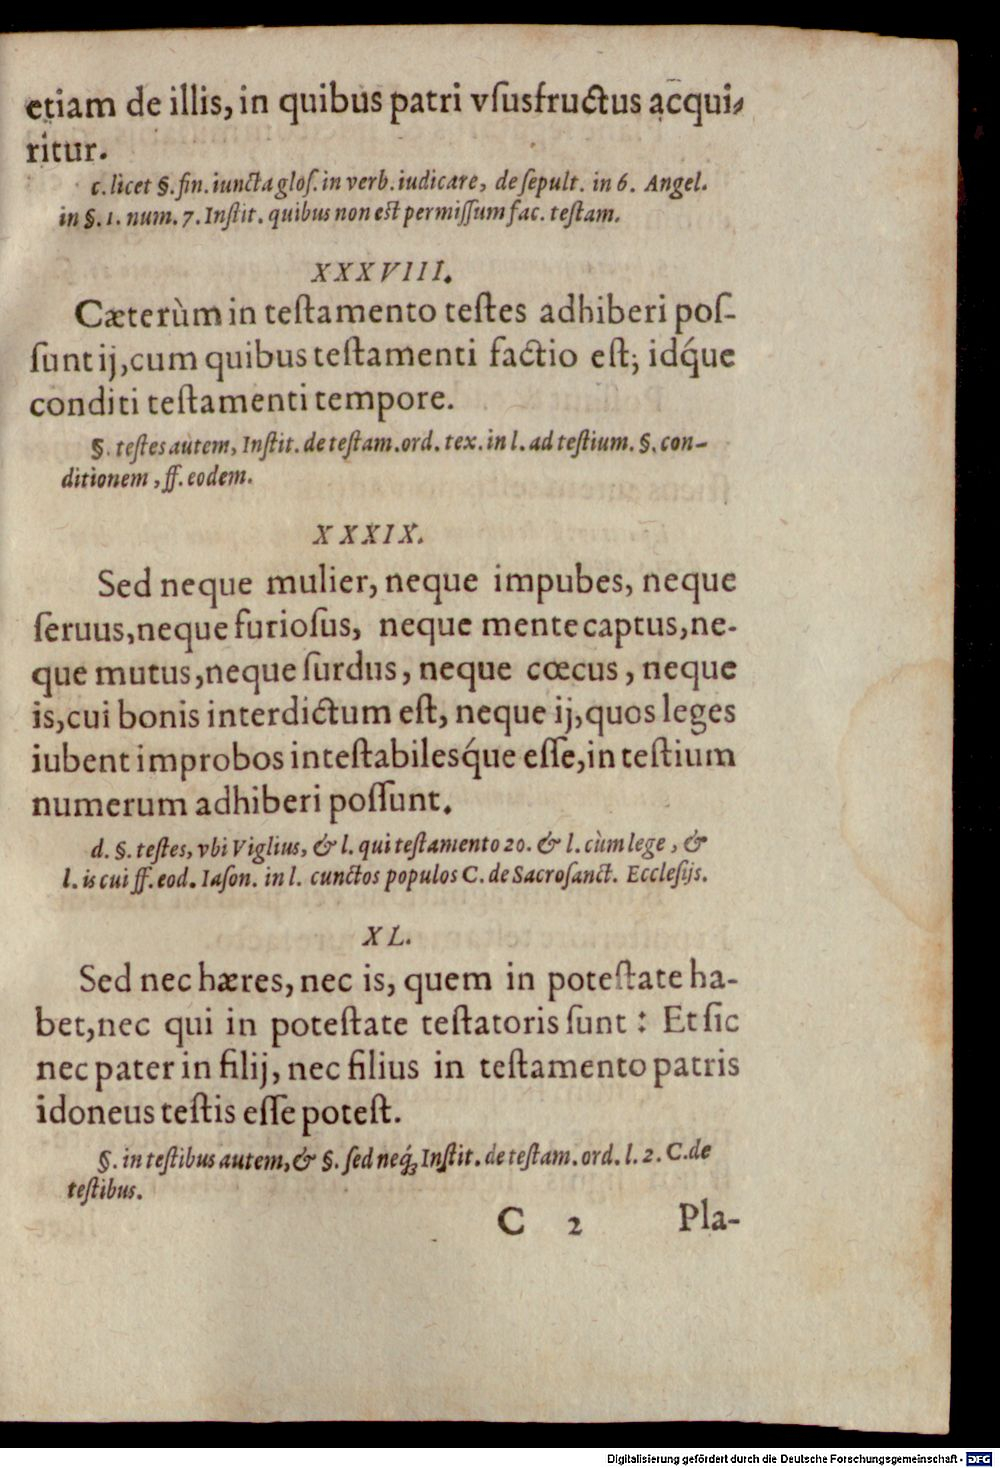 etiam de illis, in quibus patri vſusfructus acqui-
ritur.
c. licet §. fin. iuncta gloſ. in verb. iudicare, de ſepult. in 6. Angel.
in §. 1. num. 7. Inſtit. quibus non eſt permiſſum fac. teſtam.
XXXVIII.
Cæterùm in teſtamento teſtes adhiberi poſ-
ſunt ij, cum quibus teſtamenti factio eſt; idq́ue
conditi teſtamenti tempore.
§. teſtes autem, Inſtit. de teſtam. ord. tex. in l. ad teſtium. §. con-
ditionem, ff. eodem.
XXXIX.
Sed neque mulier, neque impubes, neque
ſeruus, neque furioſus, neque mente captus, ne-
que mutus, neque ſurdus, neque cœcus, neque
is, cui bonis interdictum eſt, neque ij, quos leges
iubent improbos inteſtabilesq́ue eſſe, in teſtium
numerum adhiberi poſſunt.
d. §. teſtes, vbi Viglius, & l. qui teſtamento 20. & l. cùm lege, &
l. is cui ff. eod. Iaſon. in l. cunctos populos C. de Sacroſanct. Eccleſijs.
XL.
Sed nec hæres, nec is, quem in poteſtate ha-
bet, nec qui in poteſtate teſtatoris ſunt: Et ſic
nec pater in filij, nec filius in teſtamento patris
idoneus teſtis eſſe poteſt.
§. in teſtibus autem, & §. ſed neq́ꝫ Inſtit. de teſtam. ord. l. 2. C. de
teſtibus.
C 2 Pla-
Digitalisierung gefördert durch die Deutsche Forschungsgemeinschaft - DFG